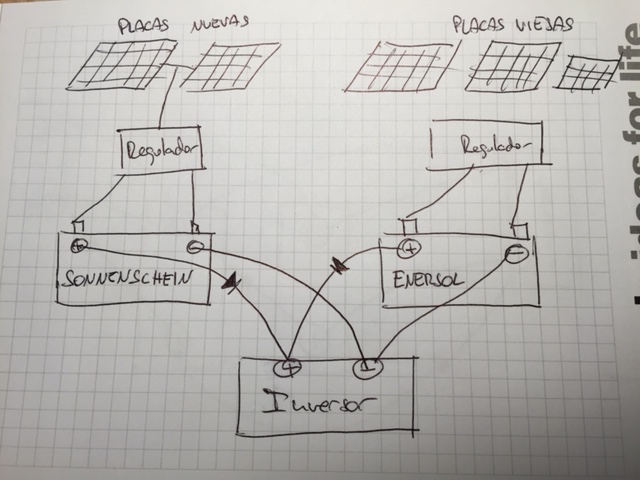 PLACAS NUEVAS
PLACAS VIEJAS
Regulador
Regulador
+ -
SONNENSCHEIN
+ -
ENERSOL
+ -
Inversor
ideas for life